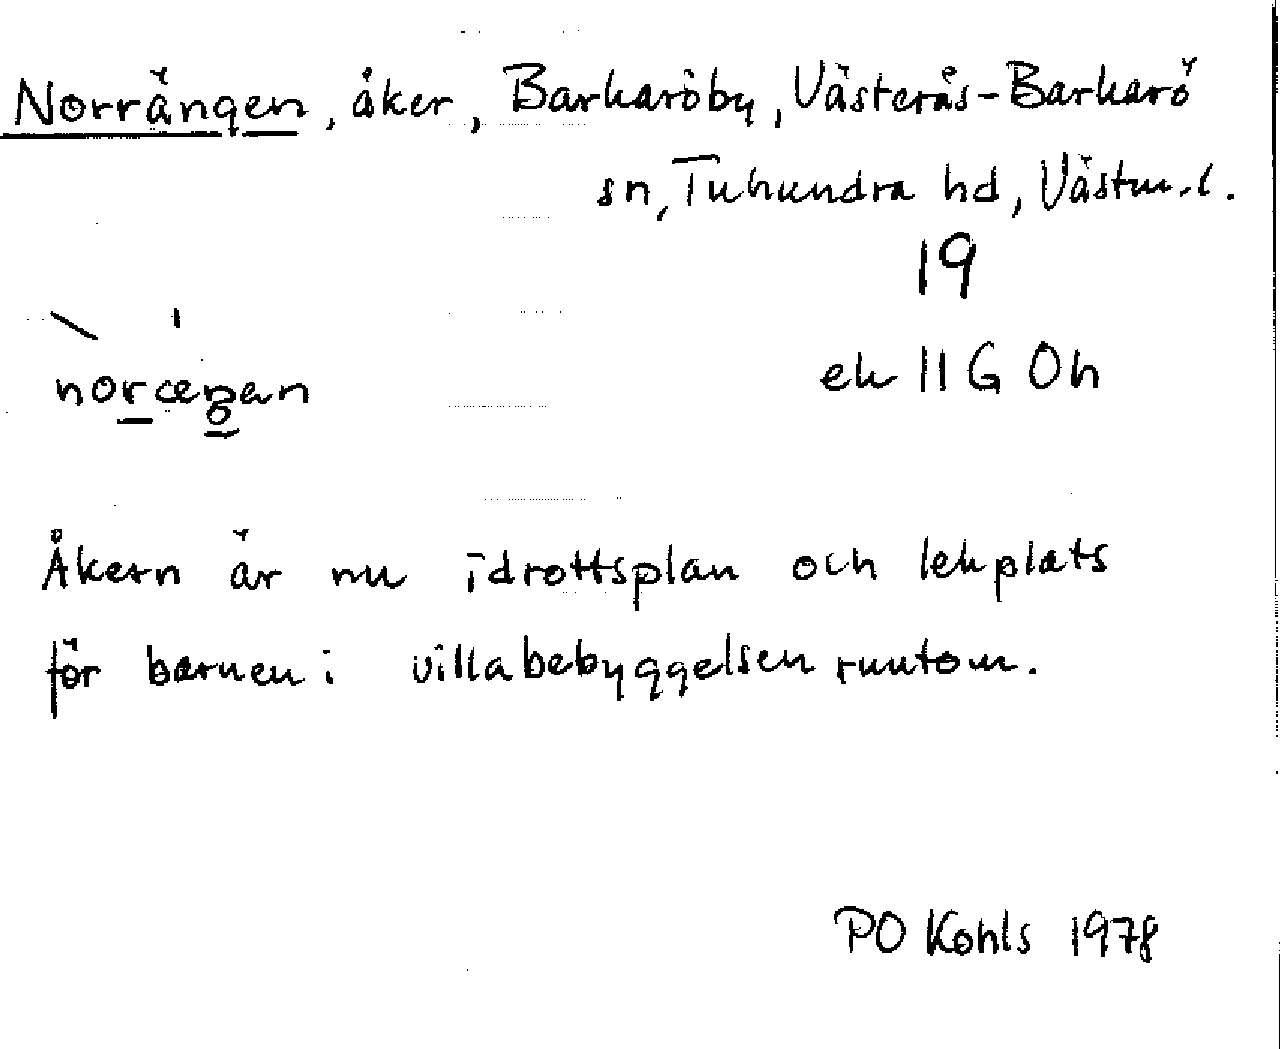 Norrängen, åker, Barkaröby, Västerås-Barkarö
sn, Tuhundra hd, Västm.l.
19
ek 11G 0h
Åkern är nu idrottsplan och lekplats
för barnen i villabebyggelsen runtom.
PO Kohls 1978